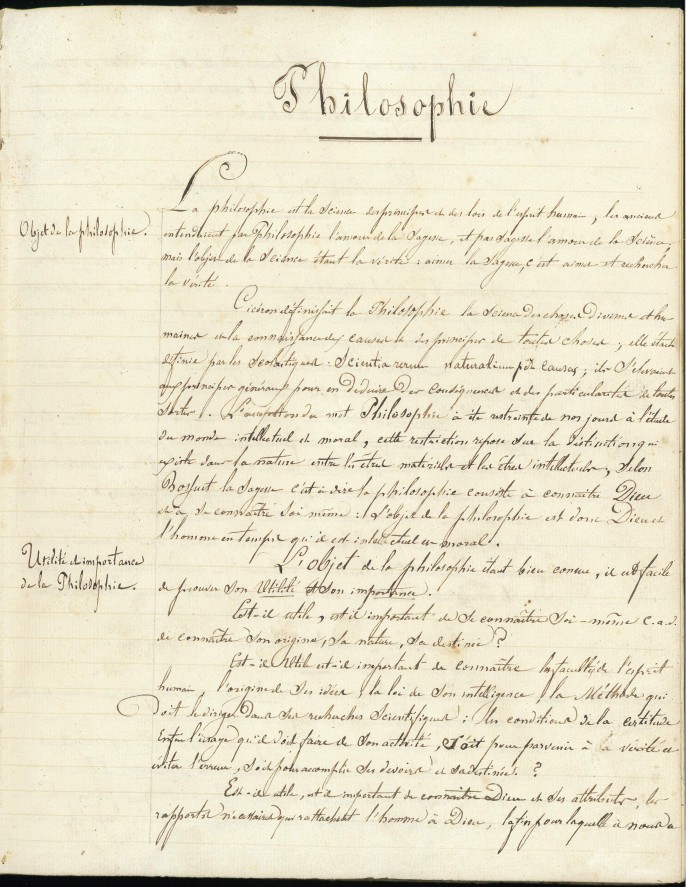 Philosophie
La philosophie est la Science des principes et des lois de l'esprit humain, les anciens
Objet de la philosophie.
entendaient par Philosophie l'amour de la Sagesse, et par Sagesse l'amour de la Science,
mais l'objet de la Science étant la vérité : aimer la Sagesse, c'est aimer et rechercher
la vérité.
Cicéron définissait la Philosophie la Science des choses divines et hu-
maines et la connaissance des causes et des principes de toutes choses ; elle était
définie par les Scolastiques : Scientia rerum naturalium per causas ; ils S'élevaient
aux principes généraux pour en déduire des conséquences et des particularités de toutes
Sortes. L'acception du mot Philosophie a été restreinte de nos jours à l'étude
du monde intellectuel et moral, cette restriction repose sur la distinction qui
existe dans la nature entre les êtres matériels et les êtres intellectuels ; Selon
Bossuet la Sagesse c'est à dire la philosophie consiste à connaître Dieu
et à Se connaître Soi même : L'objet de la philosophie est donc Dieu et
l'homme en temps qu'il est intellectuel et moral.
Utilité et importance
de la Philosophie.
L'objet de la philosophie étant bien connu, il est facile
de prouver Son Utilité et Son importance.
Est-il utile, est-il important de Se connaître Soi-même c.a.d.
de connaître Son origine, Sa nature, Sa destinée ?
Est-il Utile est-il important de connaître les facultés de l'esprit
humain, l'origine de Ses idées, la loi de Son intelligence, la Méthode qui
doit le diriger dans Ses recherches Scientifiques : les conditions de la certitude
Enfin l'usage qu'il doit faire de Son activité, Soit pour parvenir à la vérité et
éviter l'erreur, Soit pour accomplir Ses devoirs et Sa destinée. ?
Est-il utile, est-il important de connaître Dieu et Ses attributs, les
rapports nécessaires qui rattachent l'homme à Dieu, la fin pour laquelle il nous a